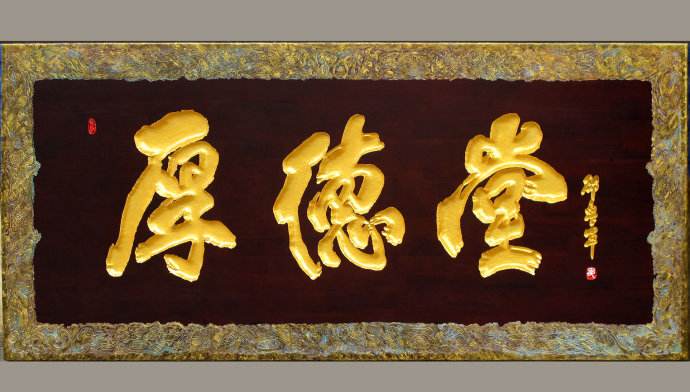 厚德堂